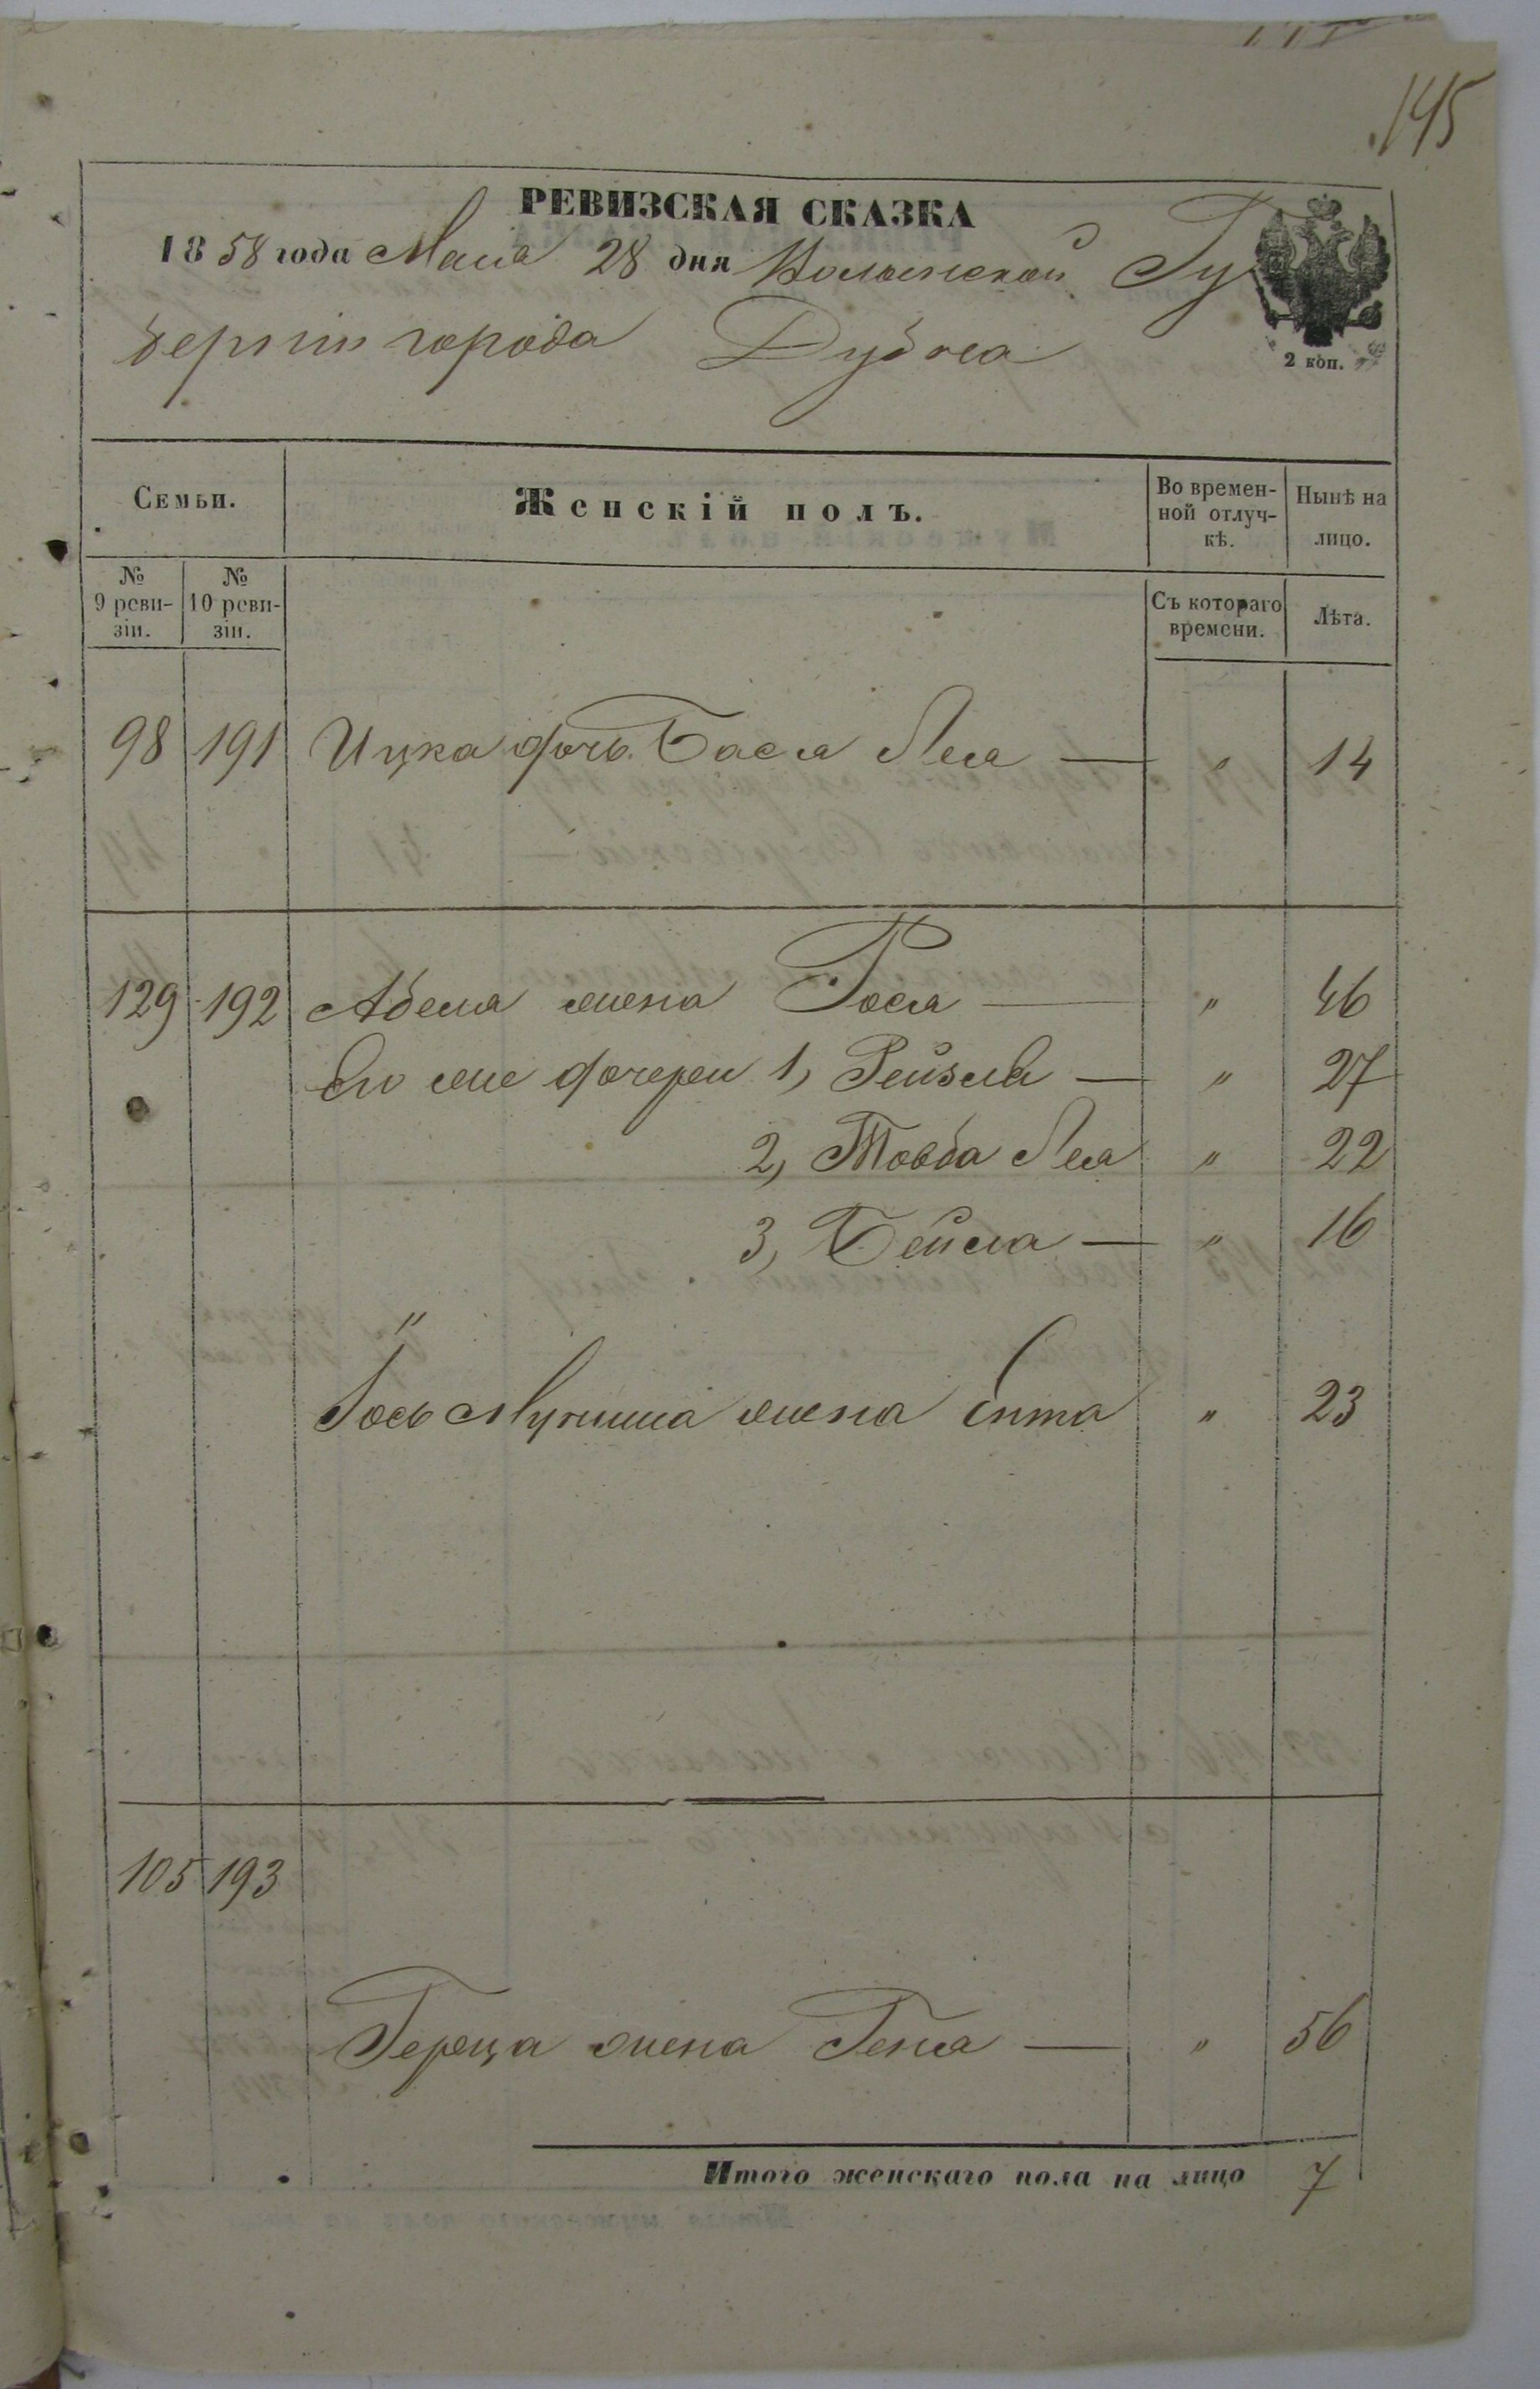 145
РЕВИЗСКАЯ СКАЗКА
1858 года Мая 28 дня Волынской Гу
берніи города Дубна
2 коп.
Семьи.
Женскій полъ.
Во времен-
ной отлуч-
кѣ.
Нынѣ на
лицо.
№
9 реви-
зіи.
№
10 реви-
зіи.
Съ котораго
времени.
Лѣта.
98 191 Ицка дочь Бася Лея — " 14
129 192 Абеля жена Рося — " 46
Его же дочери 1, Рейзля — " 27
2, Товба Лея " 22
3, Бейля — " 16
"
Мункиша жена Ента " 23
105 193
Герца жена Геня — " 56
Итого женскаго пола на лицо 7